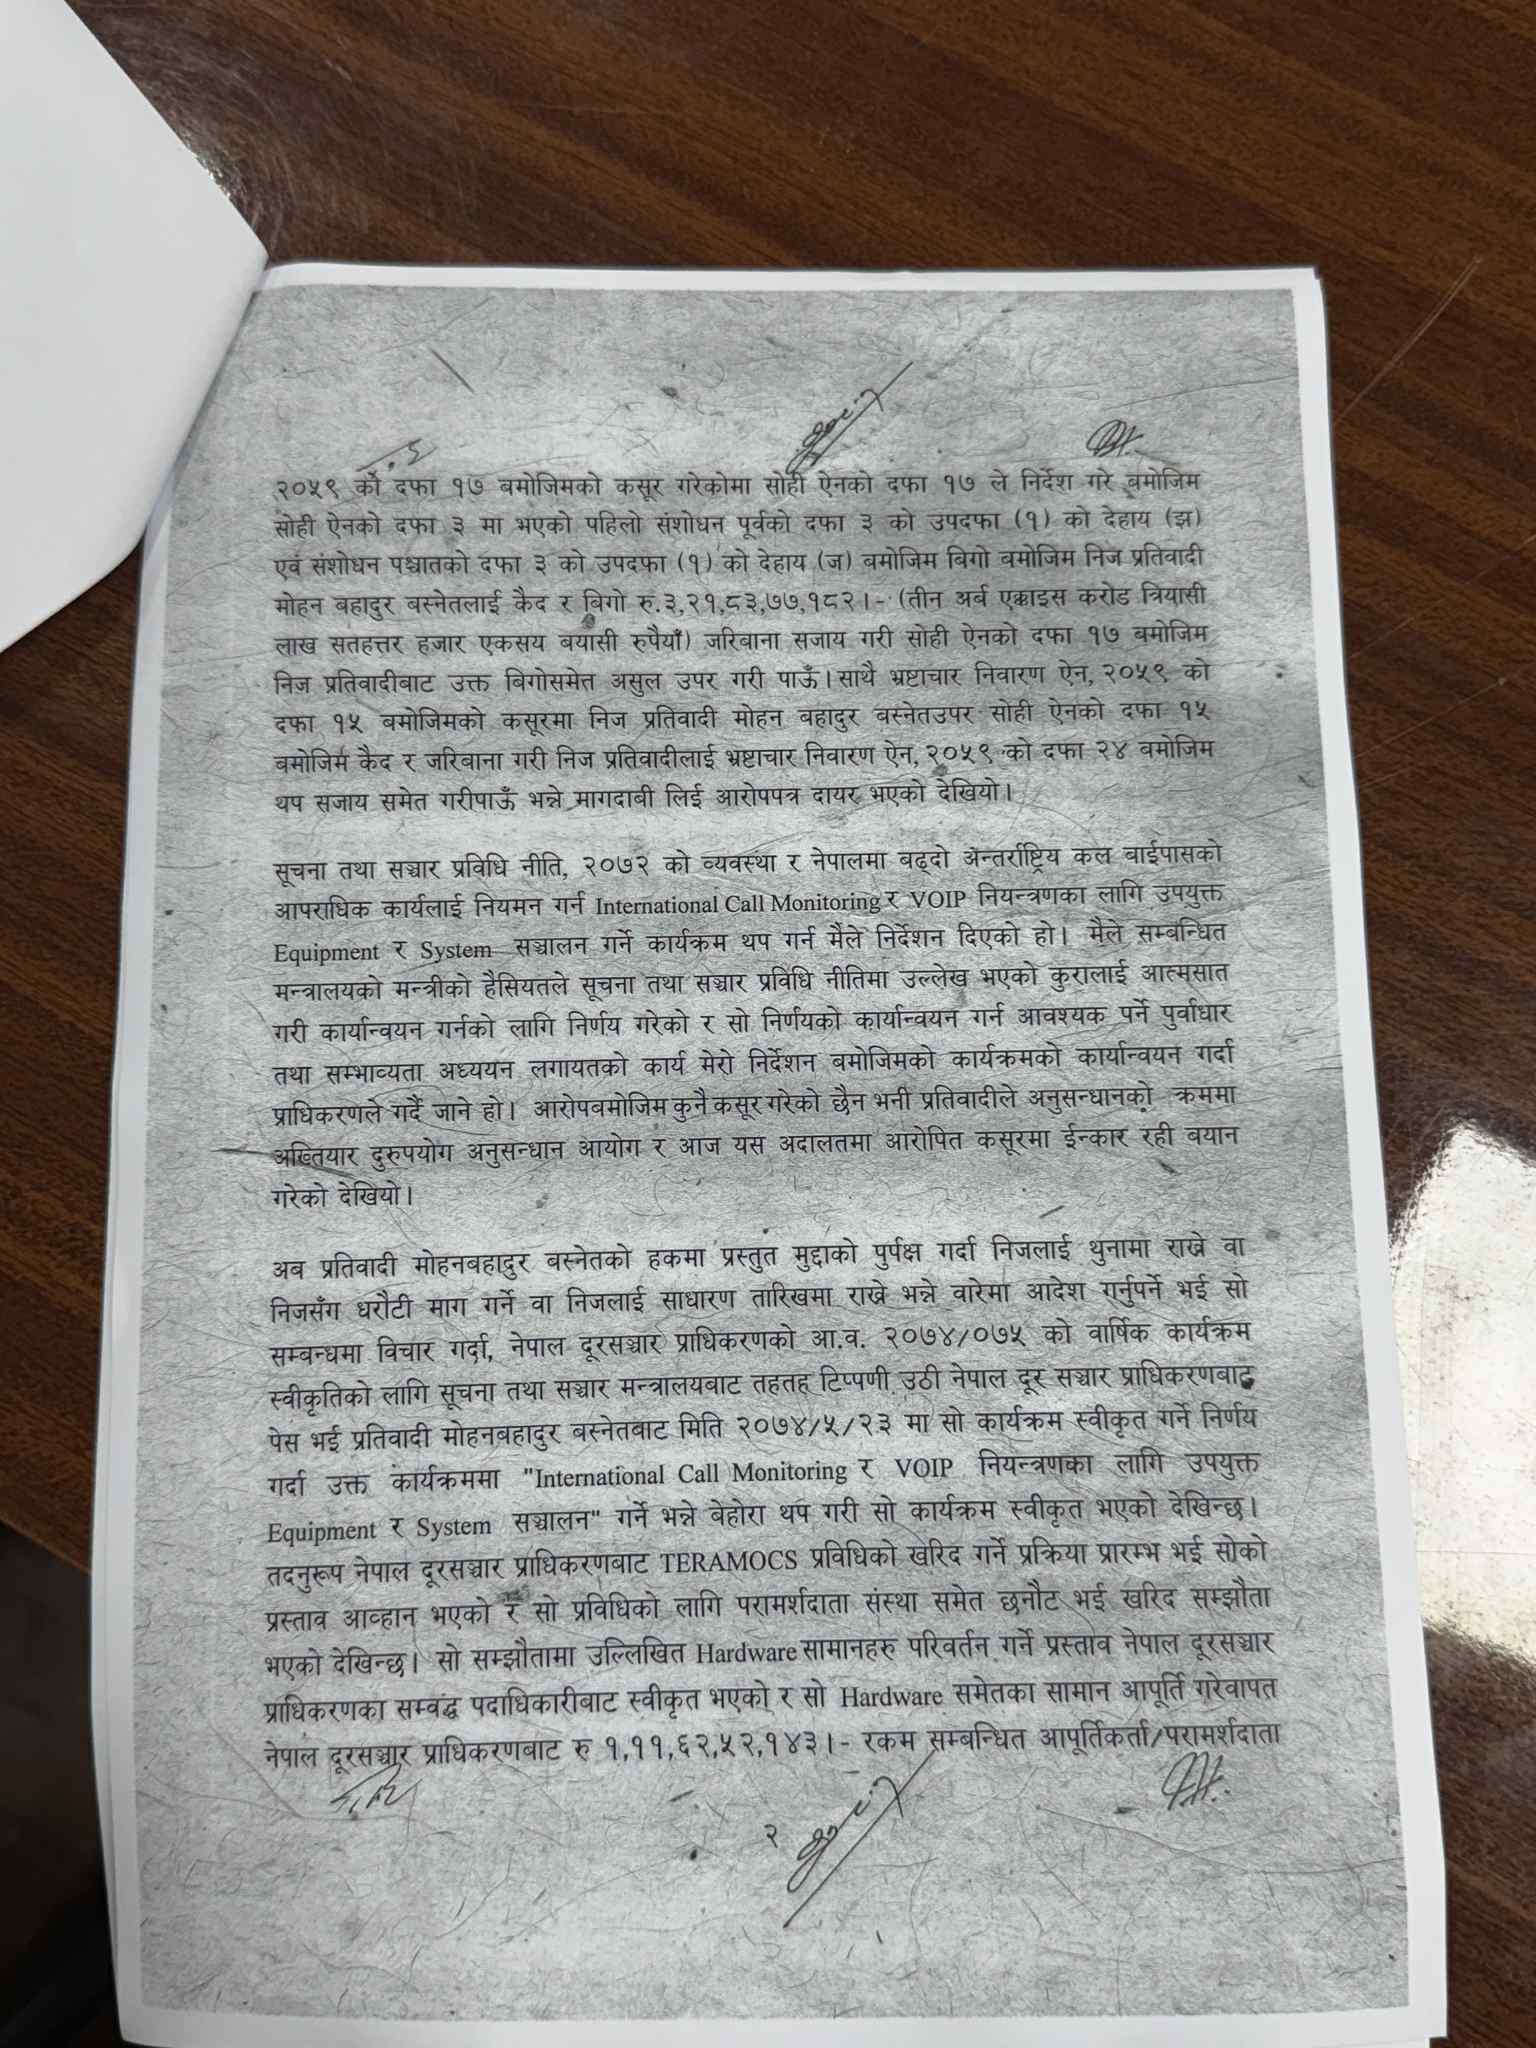 २०५९ को दफा १७ बमोजिमको कसूर गरेकोमा सोही ऐनको दफा १७ ले निर्देश गरे बमोजिम
सोही ऐनको दफा ३ मा भएको पहिलो संशोधन पूर्वको दफा ३ को उपदफा (१) को देहाय (झ)
एवं संशोधन पश्चातको दफा ३ को उपदफा (१) को देहाय (ज) बमोजिम बिगो बमोजिम निज प्रतिवादी
मोहन बहादुर बस्नेतलाई कैद र बिगो रु.३,२१,८३,७७,१८२।- (तीन अर्ब एक्काइस करोड त्रियासी
लाख सतहत्तर हजार एकसय बयासी रुपैयाँ) जरिबाना सजाय गरी सोही ऐनको दफा १७ बमोजिम
निज प्रतिवादीबाट उक्त बिगोसमेत असुल उपर गरी पाऊँ। साथै भ्रष्टाचार निवारण ऐन, २०५९ को
दफा १५ बमोजिमको कसूरमा निज प्रतिवादी मोहन बहादुर बस्नेतउपर सोही ऐनको दफा १५
बमोजिम कैद र जरिबाना गरी निज प्रतिवादीलाई भ्रष्टाचार निवारण ऐन, २०५९ को दफा २४ बमोजिम
थप सजाय समेत गरीपाऊँ भन्ने मागदाबी लिई आरोपपत्र दायर भएको देखियो।
सूचना तथा सञ्चार प्रविधि नीति, २०७२ को व्यवस्था र नेपालमा बढ्दो अन्तर्राष्ट्रिय कल बाईपासको
आपराधिक कार्यलाई नियमन गर्न International Call Monitoring र VOIP नियन्त्रणका लागि उपयुक्त
Equipment र System सञ्चालन गर्ने कार्यक्रम थप गर्न मैले निर्देशन दिएको हो। मैले सम्बन्धित
मन्त्रालयको मन्त्रीको हैसियतले सूचना तथा सञ्चार प्रविधि नीतिमा उल्लेख भएको कुरालाई आत्मसात
गरी कार्यान्वयन गर्नको लागि निर्णय गरेको र सो निर्णयको कार्यान्वयन गर्न आवश्यक पर्ने पुर्वाधार
तथा सम्भाव्यता अध्ययन लगायतको कार्य मेरो निर्देशन बमोजिमको कार्यक्रमको कार्यान्वयन गर्दा
प्राधिकरणले गर्दै जाने हो। आरोपबमोजिम कुनै कसूर गरेको छैन भनी प्रतिवादीले अनुसन्धानको क्रममा
अख्तियार दुरुपयोग अनुसन्धान आयोग र आज यस अदालतमा आरोपित कसूरमा ईन्कार रही बयान
गरेको देखियो।
अब प्रतिवादी मोहनबहादुर बस्नेतको हकमा प्रस्तुत मुद्दाको पुर्पक्ष गर्दा निजलाई थुनामा राख्ने वा
निजसँग धरौटी माग गर्ने वा निजलाई साधारण तारिखमा राख्ने भन्ने वारेमा आदेश गर्नुपर्ने भई सो
सम्बन्धमा विचार गर्दा, नेपाल दूरसञ्चार प्राधिकरणको आ.व. २०७४/०७५ को वार्षिक कार्यक्रम
स्वीकृतिको लागि सूचना तथा सञ्चार मन्त्रालयबाट तहतह टिप्पणी उठी नेपाल दूर सञ्चार प्राधिकरणबाट
पेस भई प्रतिवादी मोहनबहादुर बस्नेतबाट मिति २०७४/५/२३ मा सो कार्यक्रम स्वीकृत गर्ने निर्णय
गर्दा उक्त कार्यक्रममा "International Call Monitoring र VOIP नियन्त्रणका लागि उपयुक्त
Equipment र System सञ्चालन" गर्ने भन्ने बेहोरा थप गरी सो कार्यक्रम स्वीकृत भएको देखिन्छ।
तदनुरूप नेपाल दूरसञ्चार प्राधिकरणबाट TERAMOCS प्रविधिको खरिद गर्ने प्रक्रिया प्रारम्भ भई सोको
प्रस्ताव आव्हान भएको र सो प्रविधिको लागि परामर्शदाता संस्था समेत छनौट भई खरिद सम्झौता
भएको देखिन्छ। सो सम्झौतामा उल्लिखित Hardware सामानहरु परिवर्तन गर्ने प्रस्ताव नेपाल दूरसञ्चार
प्राधिकरणका सम्वद्ध पदाधिकारीबाट स्वीकृत भएको र सो Hardware समेतका सामान आपूर्ति गरेवापत
नेपाल दूरसञ्चार प्राधिकरणबाट रु १,११,६२,५२,१४३।- रकम सम्बन्धित आपूर्तिकर्ता/परामर्शदाता
२